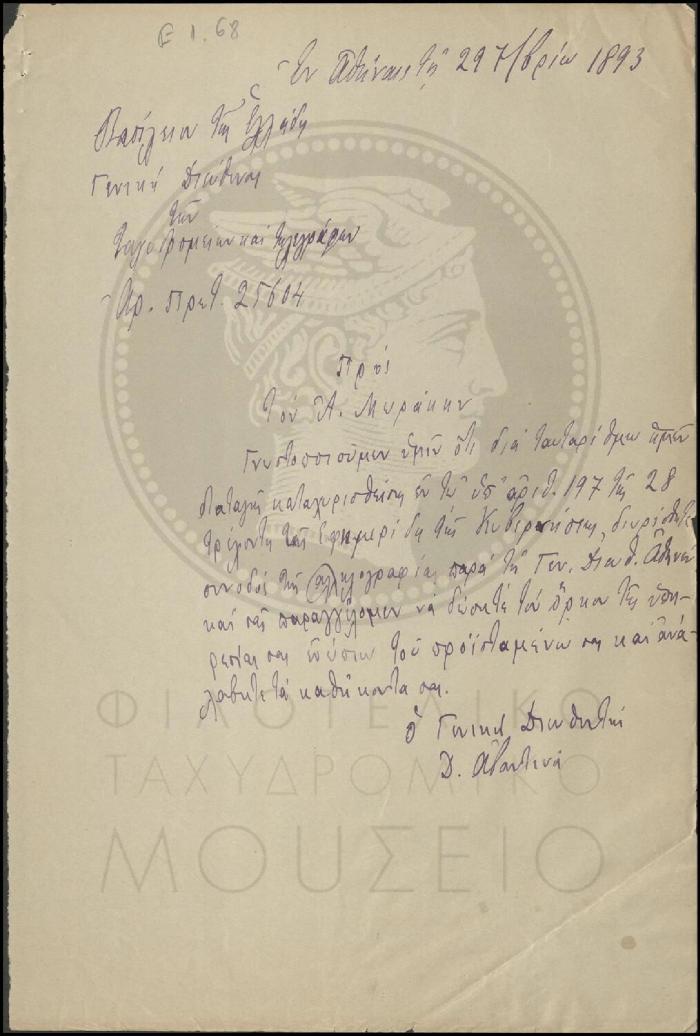 E 1.68
Ἐν Ἀθήναις τῇ 29 7/βρίου 1893
Βασίλειον τῆς Ἑλλάδος
Γενική Διεύθυνσις
τῶν
Ταχυδρομείων και Τηλεγράφων
Ἀρ. Πρωτ. 25604
Πρός
Τον Α. Μωράκην
Γνωστοποιούμεν ὑμῖν ὅτι διά ταυταρίθμου ἡμῶν
διαταγῆς καταχωρισθείσης ἐν τῷ ὑπ' ἀριθ. 197 τῆς 28
τρέχοντος τῆς Εφημερίδος τῆς Κυβερνήσεως, διωρίσθητε
συνοδός τῆς ἀλληλογραφίας παρά τῇ Γεν. Διευθ. Ἀθηνῶν
και σας παραγγέλομεν νά δώσητε τόν ὅρκον τῆς ὑπη-
ρεσίας σας ἐνώπιον τοῦ προϊσταμένου σας καί ἀνα-
λάβητε τά καθήκοντα σας.
ὁ Γενικός Διευθυντής
Δ.
ΦΙΛΟΤΕΛΙΚΟ
ΤΑΧΥΔΡΟΜΙΚΟ
ΜΟΥΣΕΙΟ